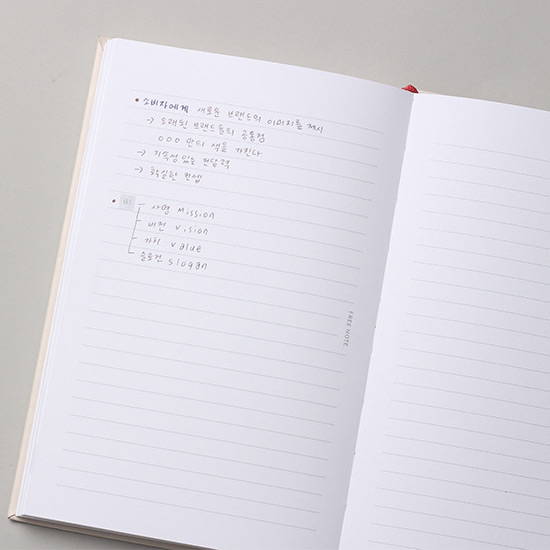 • 소비자에게 새로운 브랜드의 이미지를 제시
→ 오래된 브랜드들의 공통점
○○○ 만의 색을 가진다
→ 지속성 있는 전달력
→ 확실한 컨셉
•
사명 Mission
비전 vision
가치 value
슬로건 slogan
FREE NOTE